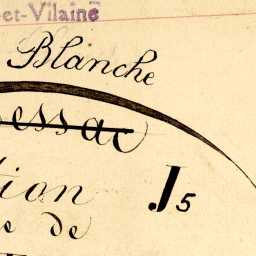 et-Vilaine
Blanche
essac
tion
J5
e de